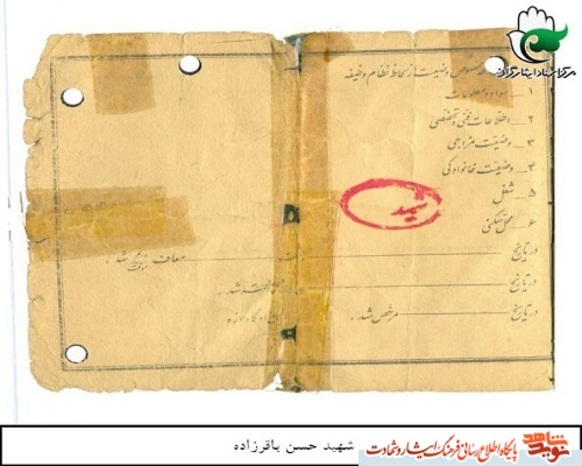 مرکز اسناد ایثارگران
مخصوص وضعیت از لحاظ نظام وظیفه
۱ – سواد و معلومات
۲ – اطلاعات فنی و تخصصی
۳ – وضعیت مزاجی
۴ – وضعیت خانوادگی
۵ – شغل
شهید
۶ – محل سکنی
در تاریخ معاف شد .
در تاریخ شد .
در تاریخ مرخص شد .
حوزه
شهید حسن باقرزاده
نوید شاهد
پایگاه اطلاع رسانی فرهنگ ایثار و شهادت